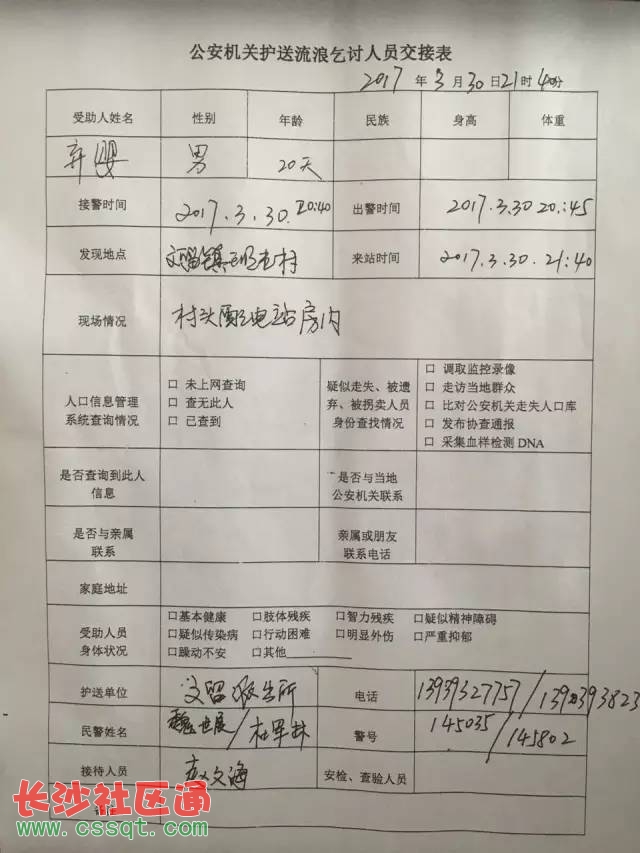 公安机关护送流浪乞讨人员交接表
2017 年 3 月 30 日 21 时 40 分
受助人姓名 性别 年龄 民族 身高 体重
弃婴 男 20天
接警时间 2017.3.30. 20:40 出警时间 2017.3.30 20:45
发现地点 文留镇 村 来站时间 2017.3.30. 21:40
现场情况 村头配电站房内
人口信息管理
系统查询情况
□ 未上网查询
□ 查无此人
□ 已查到
疑似走失、被遗
弃、被拐卖人员
身份查找情况
□ 调取监控录像
□ 走访当地群众
□ 比对公安机关走失人口库
□ 发布协查通报
□ 采集血样检测 DNA
是否查询到此人
信息
是否与当地
公安机关联系
是否与亲属
联系
亲属或朋友
联系电话
家庭地址
受助人员
身体状况
□基本健康 □肢体残疾 □智力残疾 □疑似精神障碍
□疑似传染病 □行动困难 □明显外伤 □严重抑郁
□躁动不安 □其他
护送单位 文留派出所 电话 13939327757/1390393823
民警姓名 魏世展/杜军林 警号 145035/145802
接待人员 赵文海 安检、查验人员
长沙社区通
www.cssqt.com